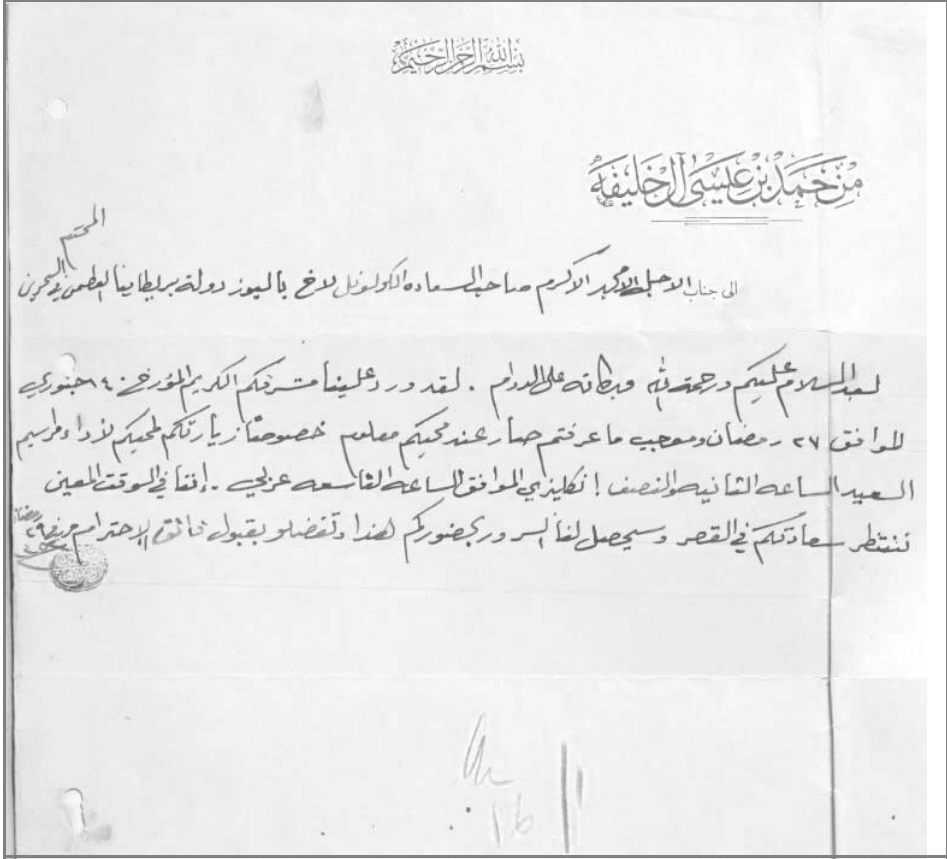 بسم الله الرحمن الرحيم
من حمد بن عيسى آل خليفة
المحترم
الى جناب الاجل الامجد الاكرم صاحب السعاده الكولونل لاخ باليوز دولة بريطانيا العظمى في البحرين
بعد السلام عليكم ورحمة الله وبركاته على الدوام . لقد ورد علينا مشرفكم الكريم المؤرخ ١٤ جنوري
الموافق ٢٧ رمضان وموجب ما عرفتم صار عند محبكم معلوم خصوصًا زيارتكم لمحبكم لأداء مراسيم
العيد الساعه الثانيه والنصف انكليزي الموافق الساعه التاسعه عربي . إننا في الوقت المعين
ننتظر سعادتكم في القصر وسيحصل لنا السرور بحضوركم هذا وتفضلو بقبول فائق الاحترام ٢٩ رمضان
16